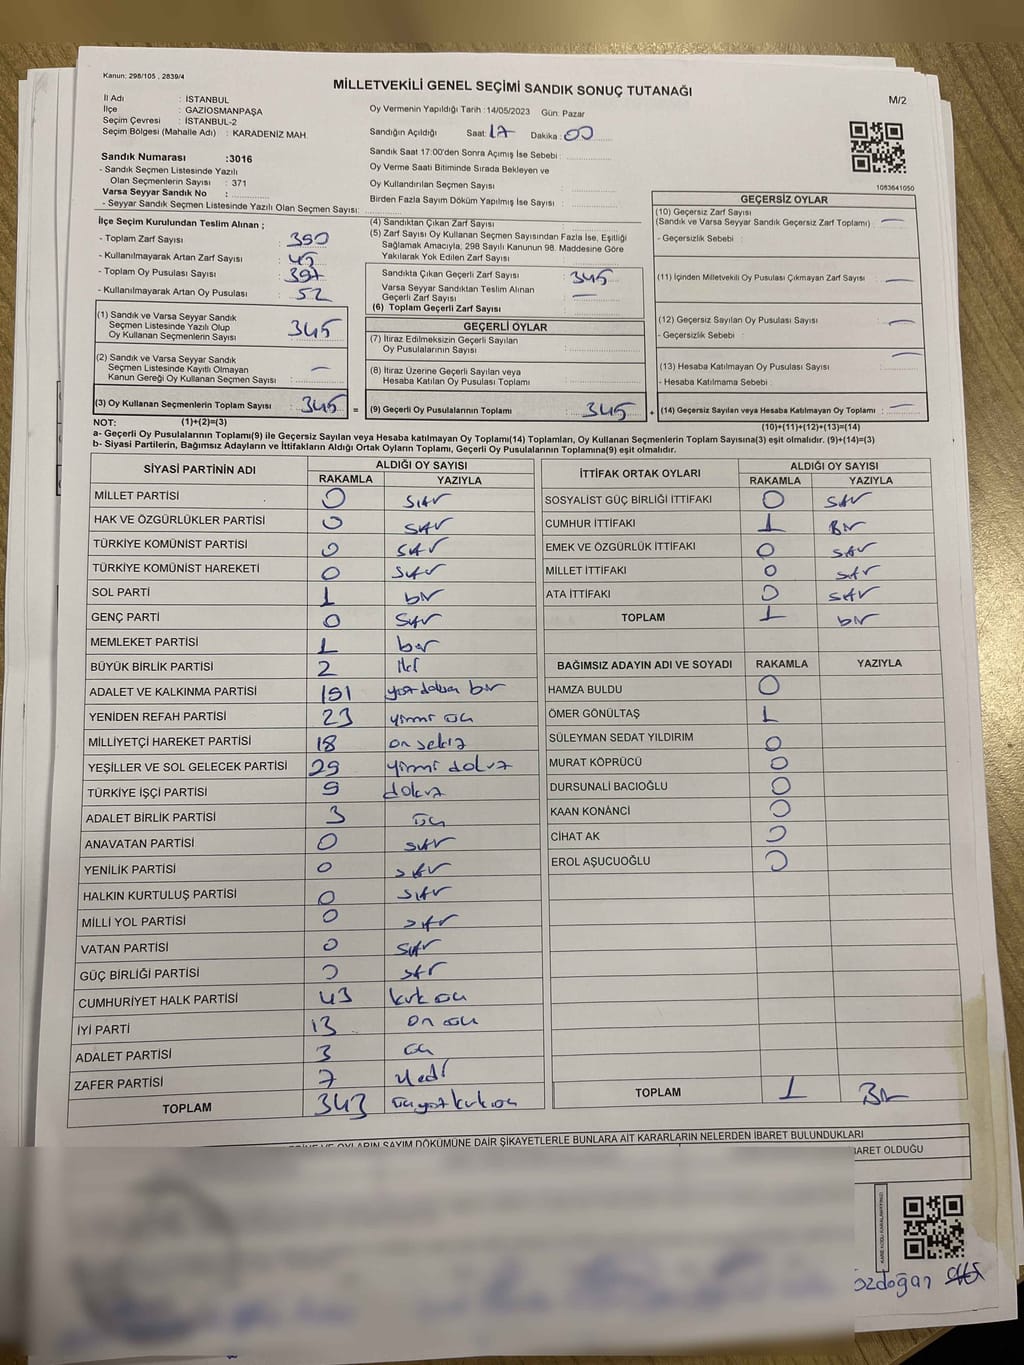 Kanun: 298/105 , 2839/4
MİLLETVEKİLİ GENEL SEÇİMİ SANDIK SONUÇ TUTANAĞI
M/2
İl Adı : İSTANBUL
İlçe : GAZİOSMANPAŞA
Seçim Çevresi : İSTANBUL-2
Seçim Bölgesi (Mahalle Adı) : KARADENİZ MAH.
Oy Vermenin Yapıldığı Tarih :14/05/2023 Gün: Pazar
Sandığın Açıldığı Saat: 17 Dakika : 00
Sandık Saat 17:00'den Sonra Açımış İse Sebebi :
Oy Verme Saati Bitiminde Sırada Bekleyen ve
Oy Kullandırılan Seçmen Sayısı :
Birden Fazla Sayım Döküm Yapılmış İse Sayısı :
1083641050
Sandık Numarası :3016
- Sandık Seçmen Listesinde Yazılı
Olan Seçmenlerin Sayısı : 371
Varsa Seyyar Sandık No :
- Seyyar Sandık Seçmen Listesinde Yazılı Olan Seçmen Sayısı:
İlçe Seçim Kurulundan Teslim Alınan ;
- Toplam Zarf Sayısı : 390
- Kullanılmayarak Artan Zarf Sayısı : 45
- Toplam Oy Pusulası Sayısı : 397
- Kullanılmayarak Artan Oy Pusulası : 52
(1) Sandık ve Varsa Seyyar Sandık
Seçmen Listesinde Yazılı Olup
Oy Kullanan Seçmenlerin Sayısı : 345
(2) Sandık ve Varsa Seyyar Sandık
Seçmen Listesinde Kayıtlı Olmayan
Kanun Gereği Oy Kullanan Seçmen Sayısı : —
(3) Oy Kullanan Seçmenlerin Toplam Sayısı : 345 =
(4) Sandıktan Çıkan Zarf Sayısı :
(5) Zarf Sayısı Oy Kullanan Seçmen Sayısından Fazla İse, Eşitliği
Sağlamak Amacıyla, 298 Sayılı Kanunun 98. Maddesine Göre
Yakılarak Yok Edilen Zarf Sayısı :
Sandıkta Çıkan Geçerli Zarf Sayısı : 345
Varsa Seyyar Sandıktan Teslim Alınan
Geçerli Zarf Sayısı : —
(6) Toplam Geçerli Zarf Sayısı :
GEÇERLİ OYLAR
(7) İtiraz Edilmeksizin Geçerli Sayılan
Oy Pusulalarının Sayısı :
(8) İtiraz Üzerine Geçerli Sayılan veya
Hesaba Katılan Oy Pusulası Toplamı :
(9) Geçerli Oy Pusulalarının Toplamı : 345 +
GEÇERSİZ OYLAR
(10) Geçersiz Zarf Sayısı
(Sandık ve Varsa Seyyar Sandık Geçersiz Zarf Toplamı) : —
- Geçersizlik Sebebi :
(11) İçinden Milletvekili Oy Pusulası Çıkmayan Zarf Sayısı : —
(12) Geçersiz Sayılan Oy Pusulası Sayısı : —
- Geçersizlik Sebebi :
(13) Hesaba Katılmayan Oy Pusulası Sayısı : —
- Hesaba Katılmama Sebebi :
(14) Geçersiz Sayılan veya Hesaba Katılmayan Oy Toplamı : —
NOT: (1)+(2)=(3) (10)+(11)+(12)+(13)=(14)
a- Geçerli Oy Pusulalarının Toplamı(9) ile Geçersiz Sayılan veya Hesaba katılmayan Oy Toplamı(14) Toplamları, Oy Kullanan Seçmenlerin Toplam Sayısına(3) eşit olmalıdır. (9)+(14)=(3)
b- Siyasi Partilerin, Bağımsız Adayların ve İttifakların Aldığı Ortak Oyların Toplamı, Geçerli Oy Pusulalarının Toplamına(9) eşit olmalıdır.
SİYASİ PARTİNİN ADI ALDIĞI OY SAYISI
RAKAMLA YAZIYLA
MİLLET PARTİSİ 0 sıfır
HAK VE ÖZGÜRLÜKLER PARTİSİ 0 sıfır
TÜRKİYE KOMÜNİST PARTİSİ 0 sıfır
TÜRKİYE KOMÜNİST HAREKETİ 0 sıfır
SOL PARTİ 1 bir
GENÇ PARTİ 0 sıfır
MEMLEKET PARTİSİ 1 bir
BÜYÜK BİRLİK PARTİSİ 2 iki
ADALET VE KALKINMA PARTİSİ 191 yüz doksan bir
YENİDEN REFAH PARTİSİ 23 yirmi üç
MİLLİYETÇİ HAREKET PARTİSİ 18 on sekiz
YEŞİLLER VE SOL GELECEK PARTİSİ 29 yirmi dokuz
TÜRKİYE İŞÇİ PARTİSİ 9 dokuz
ADALET BİRLİK PARTİSİ 3 üç
ANAVATAN PARTİSİ 0 sıfır
YENİLİK PARTİSİ 0 sıfır
HALKIN KURTULUŞ PARTİSİ 0 sıfır
MİLLİ YOL PARTİSİ 0 sıfır
VATAN PARTİSİ 0 sıfır
GÜÇ BİRLİĞİ PARTİSİ 0 sıfır
CUMHURİYET HALK PARTİSİ 43 kırk üç
İYİ PARTİ 13 on üç
ADALET PARTİSİ 3 üç
ZAFER PARTİSİ 7 yedi
TOPLAM 343 üçyüz kırk üç
İTTİFAK ORTAK OYLARI ALDIĞI OY SAYISI
RAKAMLA YAZIYLA
SOSYALİST GÜÇ BİRLİĞİ İTTİFAKI 0 sıfır
CUMHUR İTTİFAKI 1 Bir
EMEK VE ÖZGÜRLÜK İTTİFAKI 0 sıfır
MİLLET İTTİFAKI 0 sıfır
ATA İTTİFAKI 0 sıfır
TOPLAM 1 bir
BAĞIMSIZ ADAYIN ADI VE SOYADI RAKAMLA YAZIYLA
HAMZA BULDU 0
ÖMER GÖNÜLTAŞ 1
SÜLEYMAN SEDAT YILDIRIM 0
MURAT KÖPRÜCÜ 0
DURSUNALİ BACIOĞLU 0
KAAN KONÂNCİ 0
CİHAT AK 0
EROL AŞUCUOĞLU 0
TOPLAM 1 Bir
VE OYLARIN SAYIM DÖKÜMÜNE DAİR ŞİKAYETLERLE BUNLARA AİT KARARLARIN NELERDEN İBARET BULUNDUKLARI
BARET OLDUĞU
özdoğan